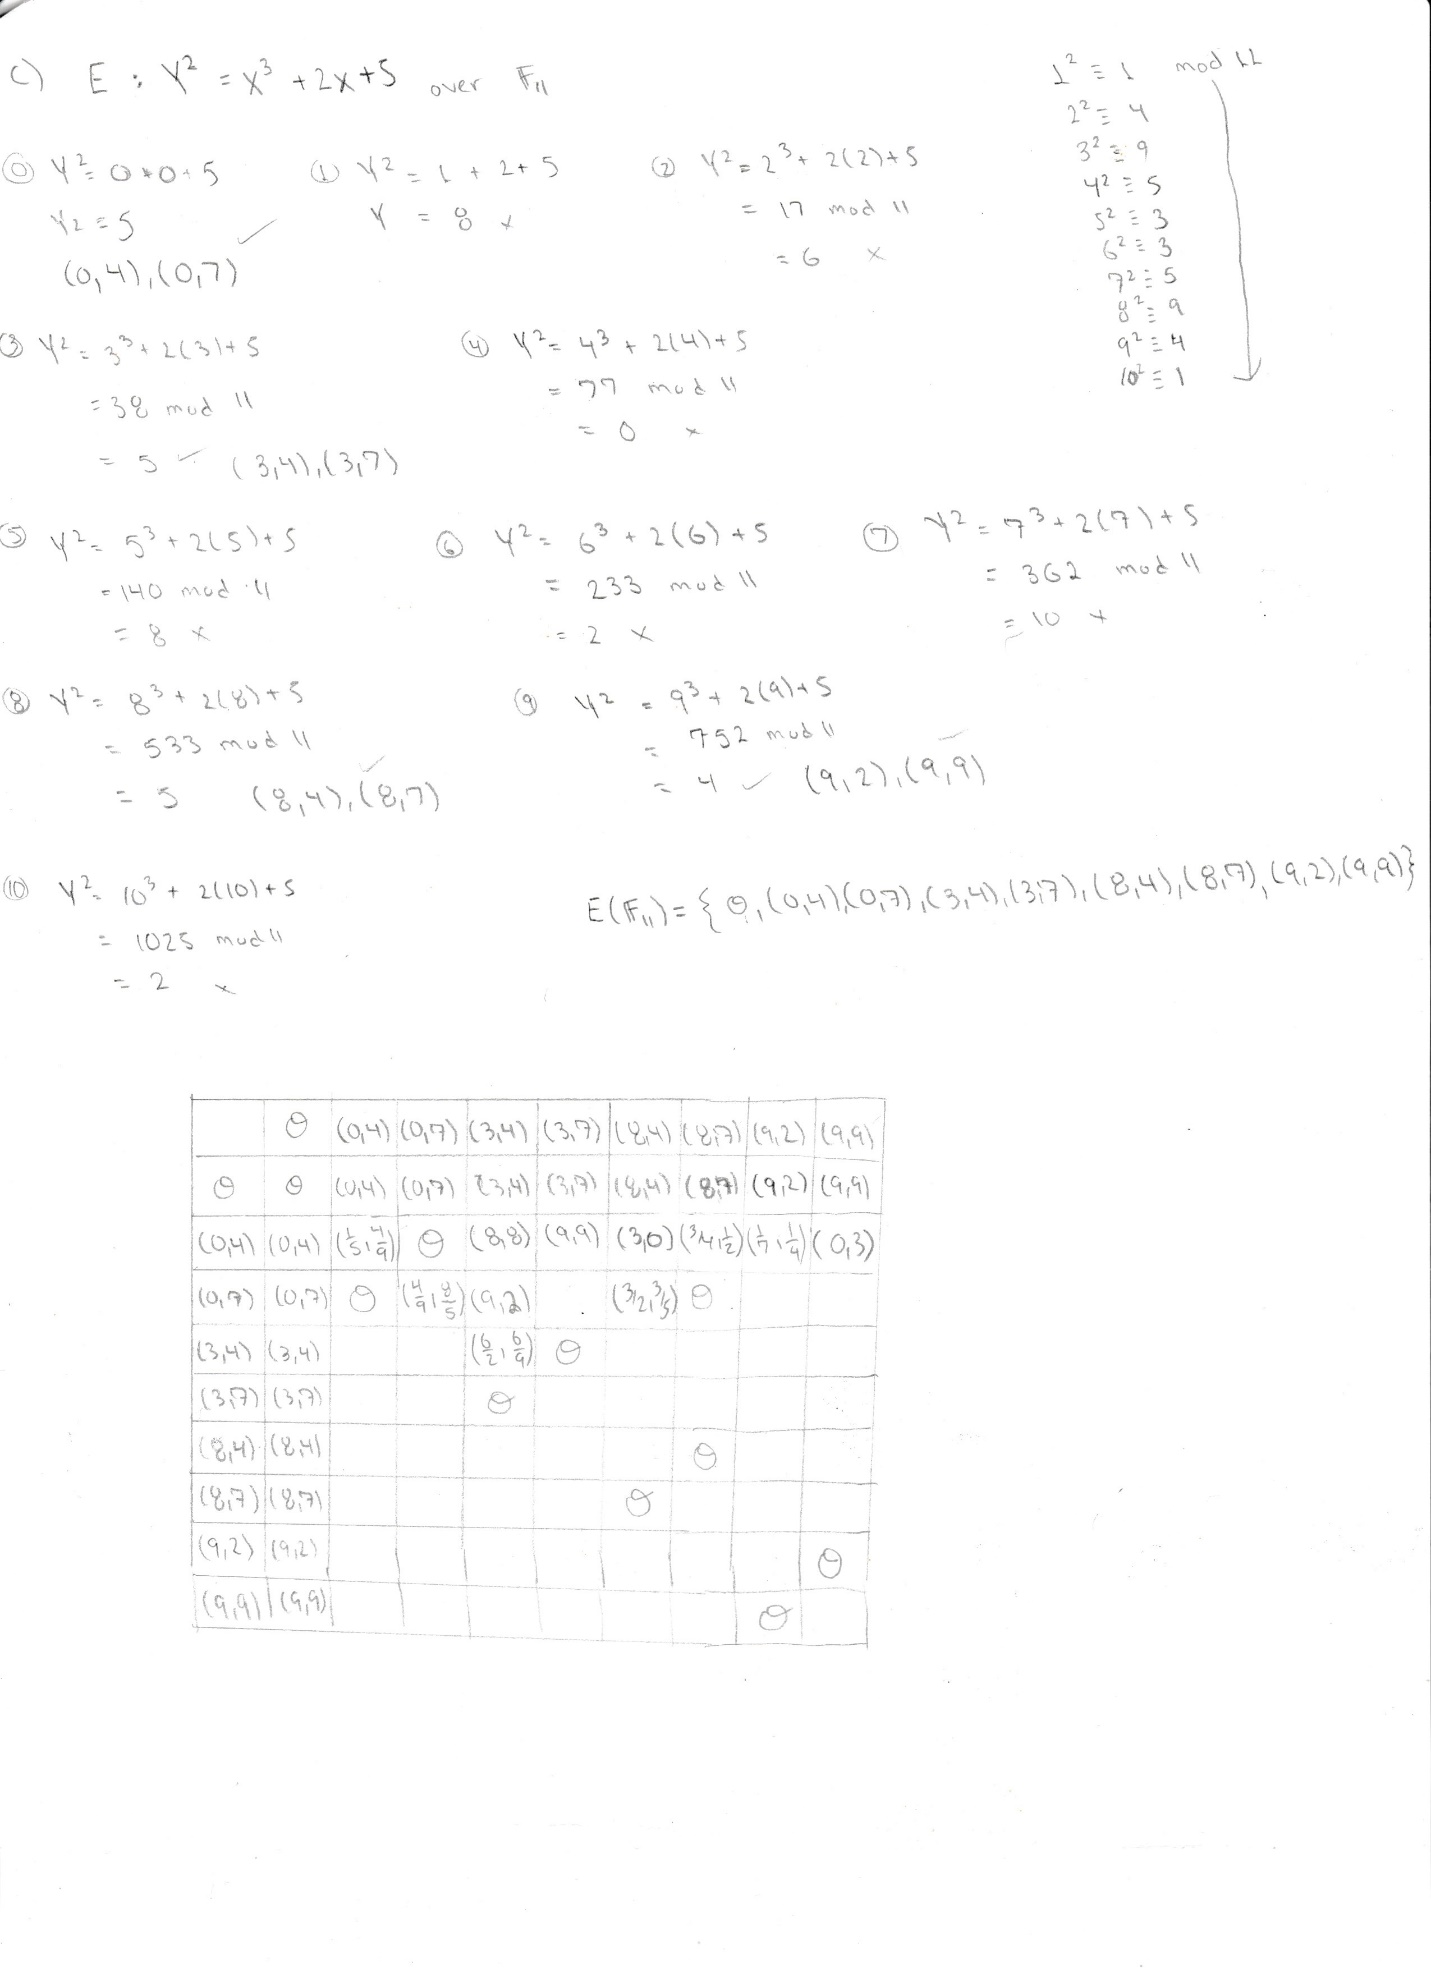 c) E : Y² = X³ + 2X + 5 over F₁₁
1² ≡ 1 mod 11
2² ≡ 4
3² ≡ 9
4² ≡ 5
5² ≡ 3
6² ≡ 3
7² ≡ 5
8² ≡ 9
9² ≡ 4
10² ≡ 1
⓪ Y² = 0+0+5
Y² = 5 ✓
(0,4),(0,7)
① Y² = 1 + 2 + 5
Y = 8 x
② Y² = 2³ + 2(2)+5
= 17 mod 11
= 6 x
③ Y² = 3³ + 2(3)+5
= 38 mod 11
= 5 ✓ (3,4),(3,7)
④ Y² = 4³ + 2(4)+5
= 77 mod 11
= 0 x
⑤ Y² = 5³ + 2(5)+5
= 140 mod 11
= 8 x
⑥ Y² = 6³ + 2(6)+5
= 233 mod 11
= 2 x
⑦ Y² = 7³ + 2(7)+5
= 362 mod 11
= 10 x
⑧ Y² = 8³ + 2(8)+5
= 533 mod 11
= 5 (8,4),(8,7) ✓
⑨ Y² = 9³ + 2(9)+5
= 752 mod 11
= 4 ✓ (9,2),(9,9)
⑩ Y² = 10³ + 2(10)+5
= 1025 mod 11
= 2 x
E(F₁₁) = { O, (0,4),(0,7),(3,4),(3,7),(8,4),(8,7),(9,2),(9,9)}
O (0,4) (0,7) (3,4) (3,7) (8,4) (8,7) (9,2) (9,9)
O O (0,4) (0,7) (3,4) (3,7) (8,4) (8,7) (9,2) (9,9)
(0,4) (0,4) (1/5,4/9) O (8,8) (9,9) (3,0) (3/4,1/2) (1/7,1/4) (0,3)
(0,7) (0,7) O (4/9,8/5) (9,2) (3/2,3/5) O
(3,4) (3,4) (6/2,6/9) O
(3,7) (3,7) O
(8,4) (8,4) O
(8,7) (8,7) O
(9,2) (9,2) O
(9,9) (9,9) O